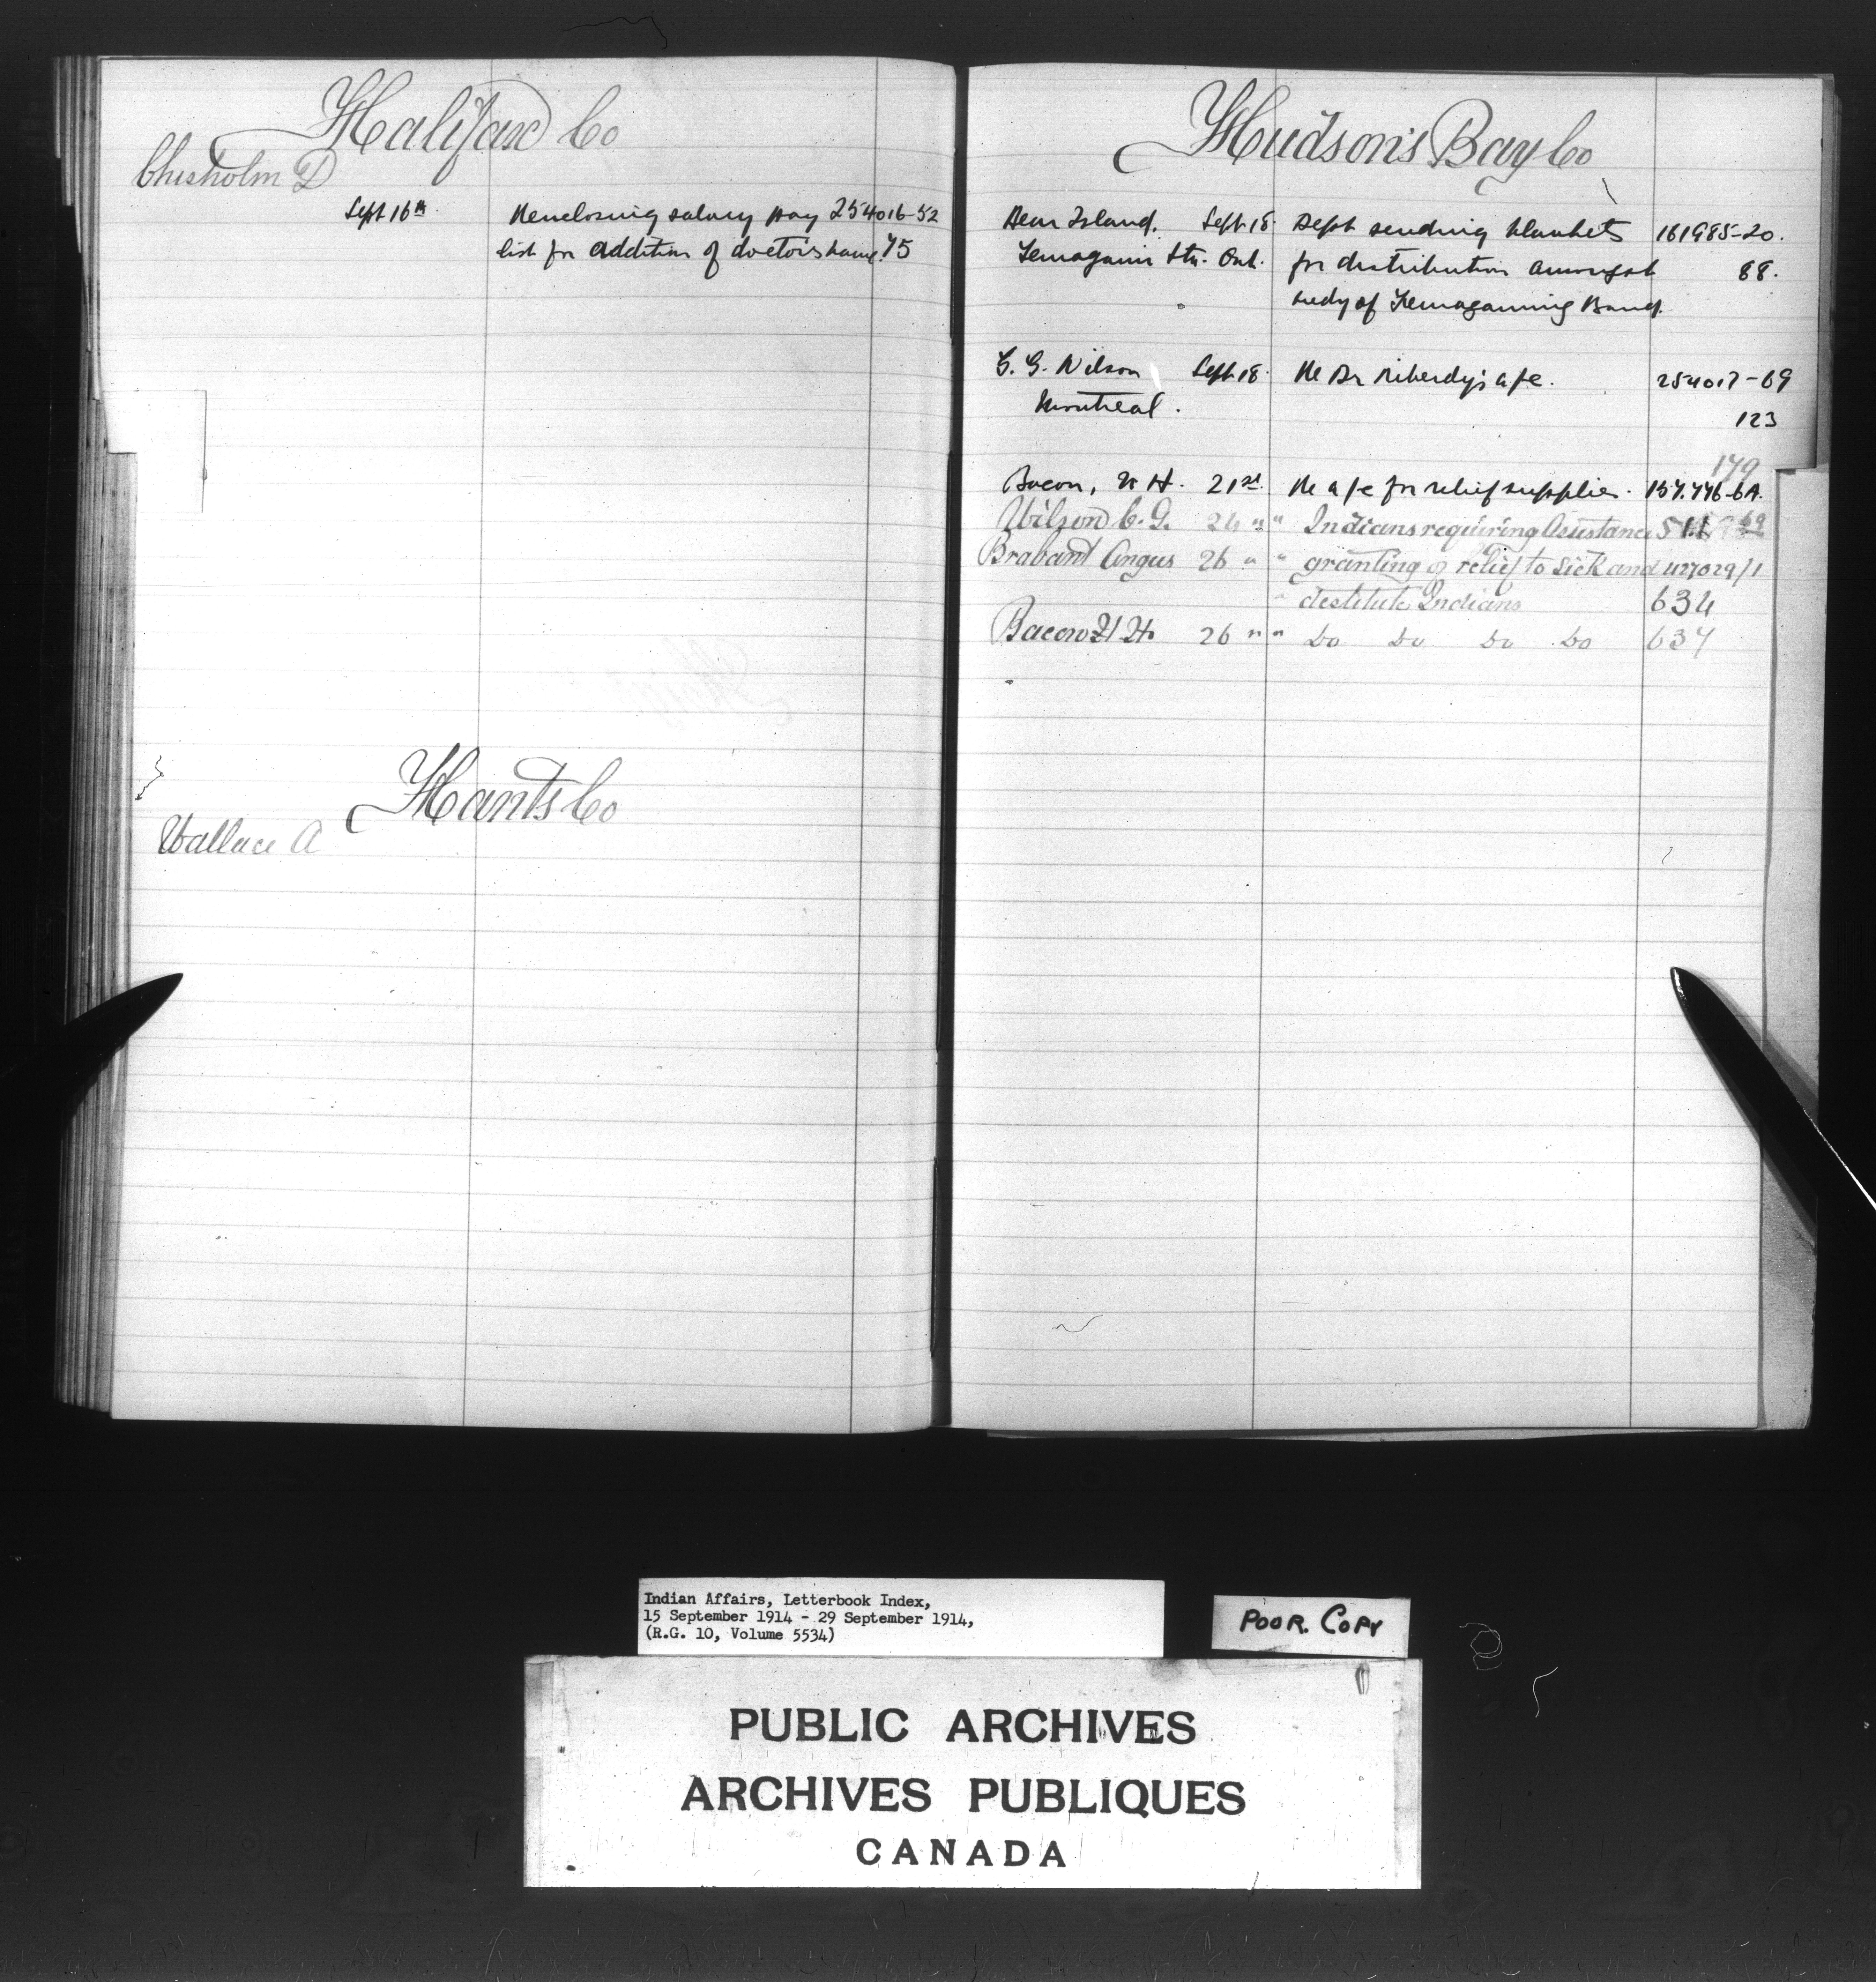 Halifax Co
Chisholm D
Sept 16th Re enclosing salary pay 254016-52
list for addition of doctor's name. 75
Hants Co
Wallace A
Hudson's Bay Co
Bear Island. Sept 18 Dept sending blankets 161985-20.
Temagami Stn. Ont. for distribution amongst 88.
of Temagaming Band.
C. G. Wilson Sept 18 Re Dr a/c. 254017-69
Montreal. 123
179
Bacon, N H. 21st Re a/c for relief supplies. 157.776-6A.
Wilson C. G. 24 " " Indians requiring Assistance
Brabant Angus 26 " " granting of relief to Sick and 427029/1
" destitute Indians 634
Bacon N H. 26 " " Do Do Do Do 637
Indian Affairs, Letterbook Index,
15 September 1914 - 29 September 1914,
(R.G. 10, Volume 5534)
POOR. COPY
PUBLIC ARCHIVES
ARCHIVES PUBLIQUES
CANADA